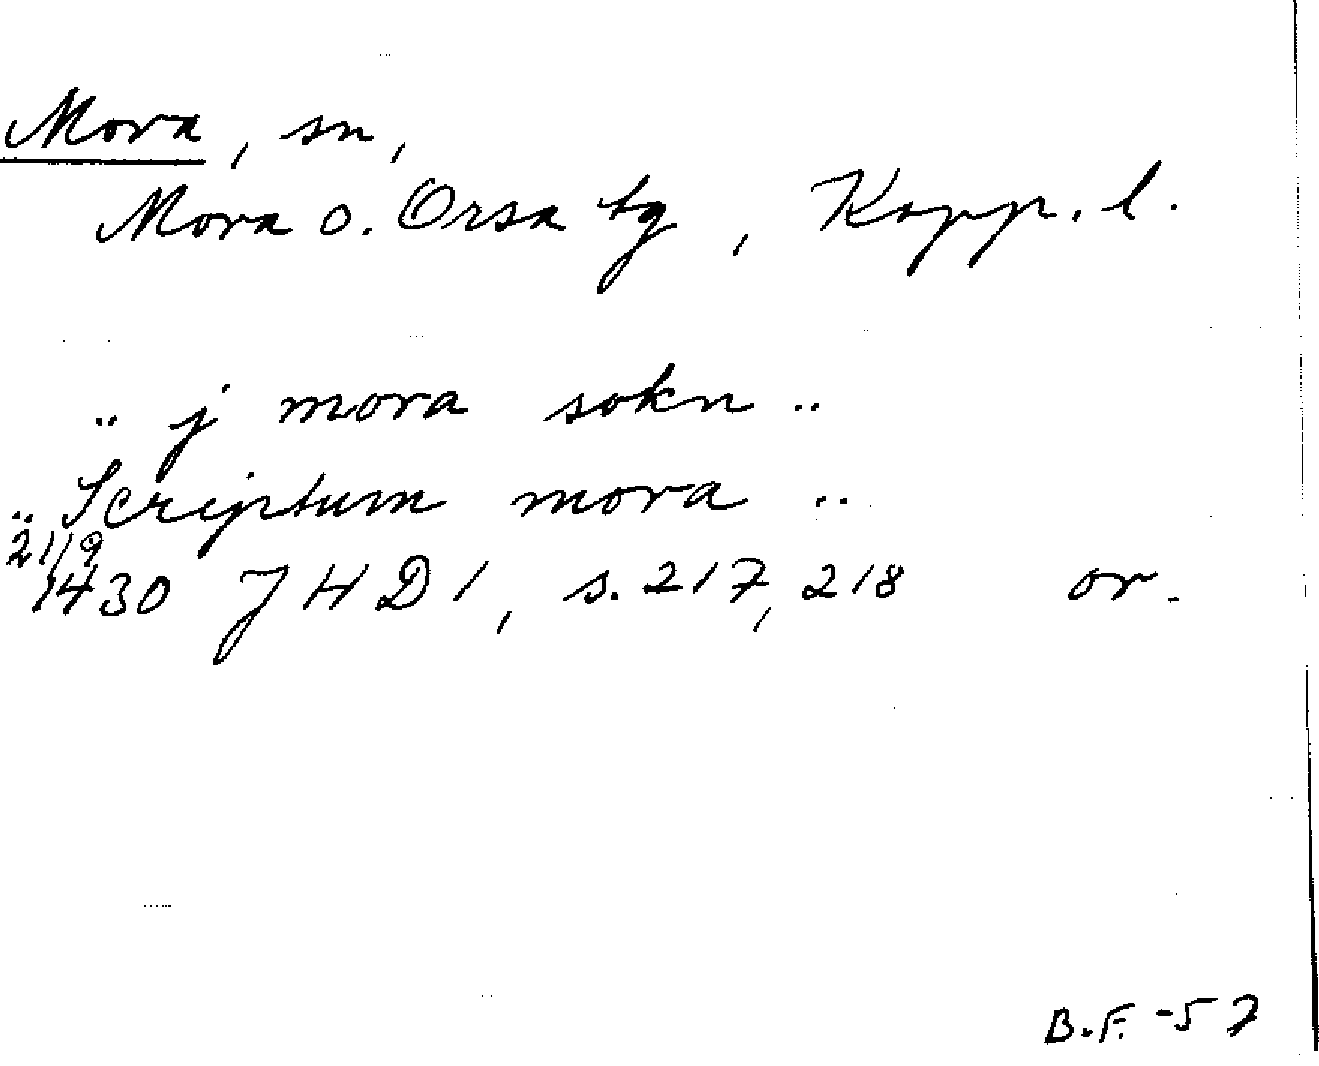 Mora, sn,
Mora o. Orsa tg, Kopp. l.
.. j mora sokn ..
.. Scriptum mora ..
21/9
1430 JHD 1, s. 217, 218 or.
B.F. -57